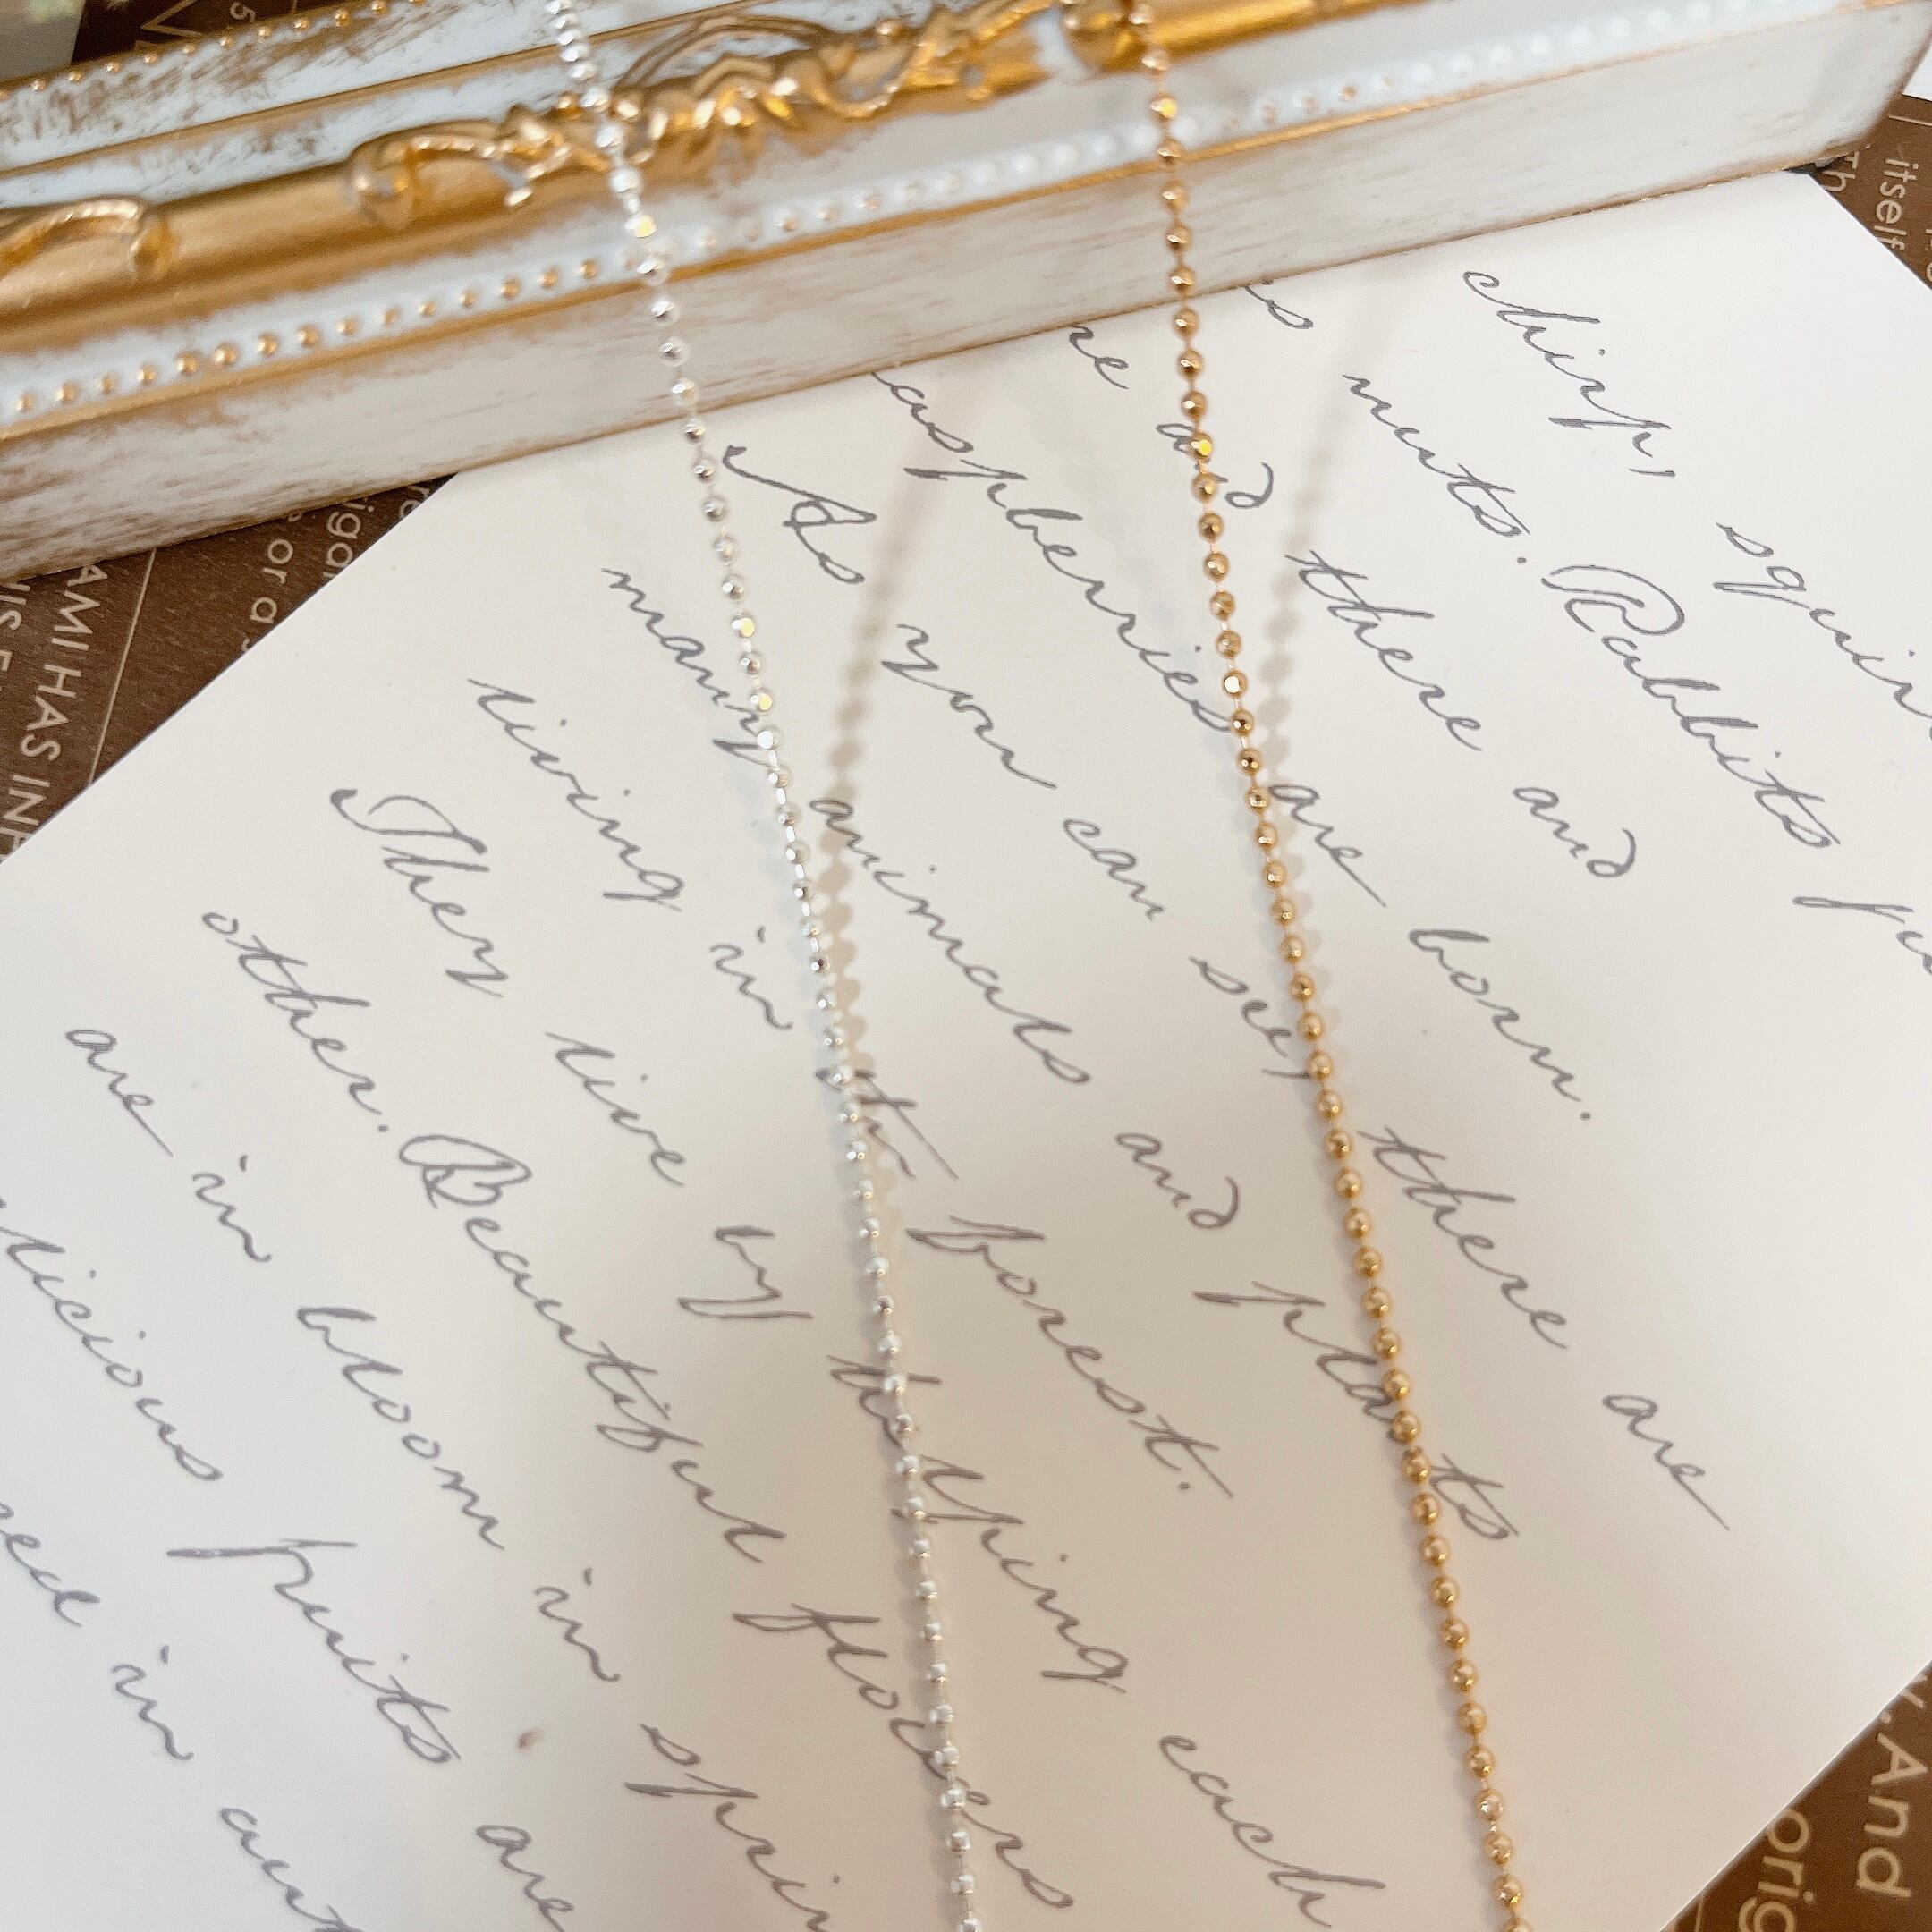 chirp, squir
nuts. Rabbits
re and there and
aspberries are born.
As you can see, there are
many animals and plants
living in the forest.
They live by helping each
other. Beautiful flowers
are in bloom in sprin
licious fruits are
in aut
itself
AMI HAS IN
or a
And
orig